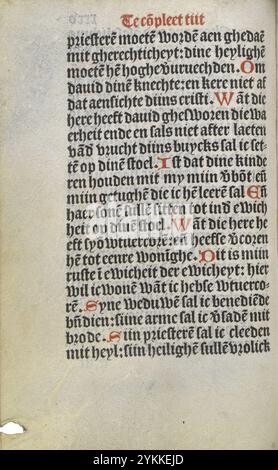 Te cōpleet tiit
priesterē moetē wordē aen ghedaē
mit gherechticheyt: dine heylighē
moetē hē hoghe vuruechden. Om
dauid dinē knechte: en kere niet af
dat aensichte diins cristi. Wāt die
here heeft dauid ghesworen die wa
erheit ende en sals niet after laeten
vād vrucht diins buycks sal ic set-
tē op dinē stoel. Ist dat dine kinde
ren houden mit my miin v̄bōt: eñ
miin getughē die ic hē leerē sal Eñ
haer sonē sullē sitten tot ind ewich
heit op dinē stoel. Wāt die here he
eft syō wtuercorē: eñ heefse vcorē
hē tot eenre wonighe. Dit is miin
rustē ī ewicheit der ewicheyt: hier
wil ic wonē wāt ic hebse wtuerco-
rē. Syne weduwē sal ic benediēde
bñdien: siine arme sal ic vsadē mit
brode. Siin priesterē sal ic cleeden
mit heyl: siin heilighē sullē vrolick
a
alamy
alamy
Image ID: 2YKKEJD
www.alamy.com